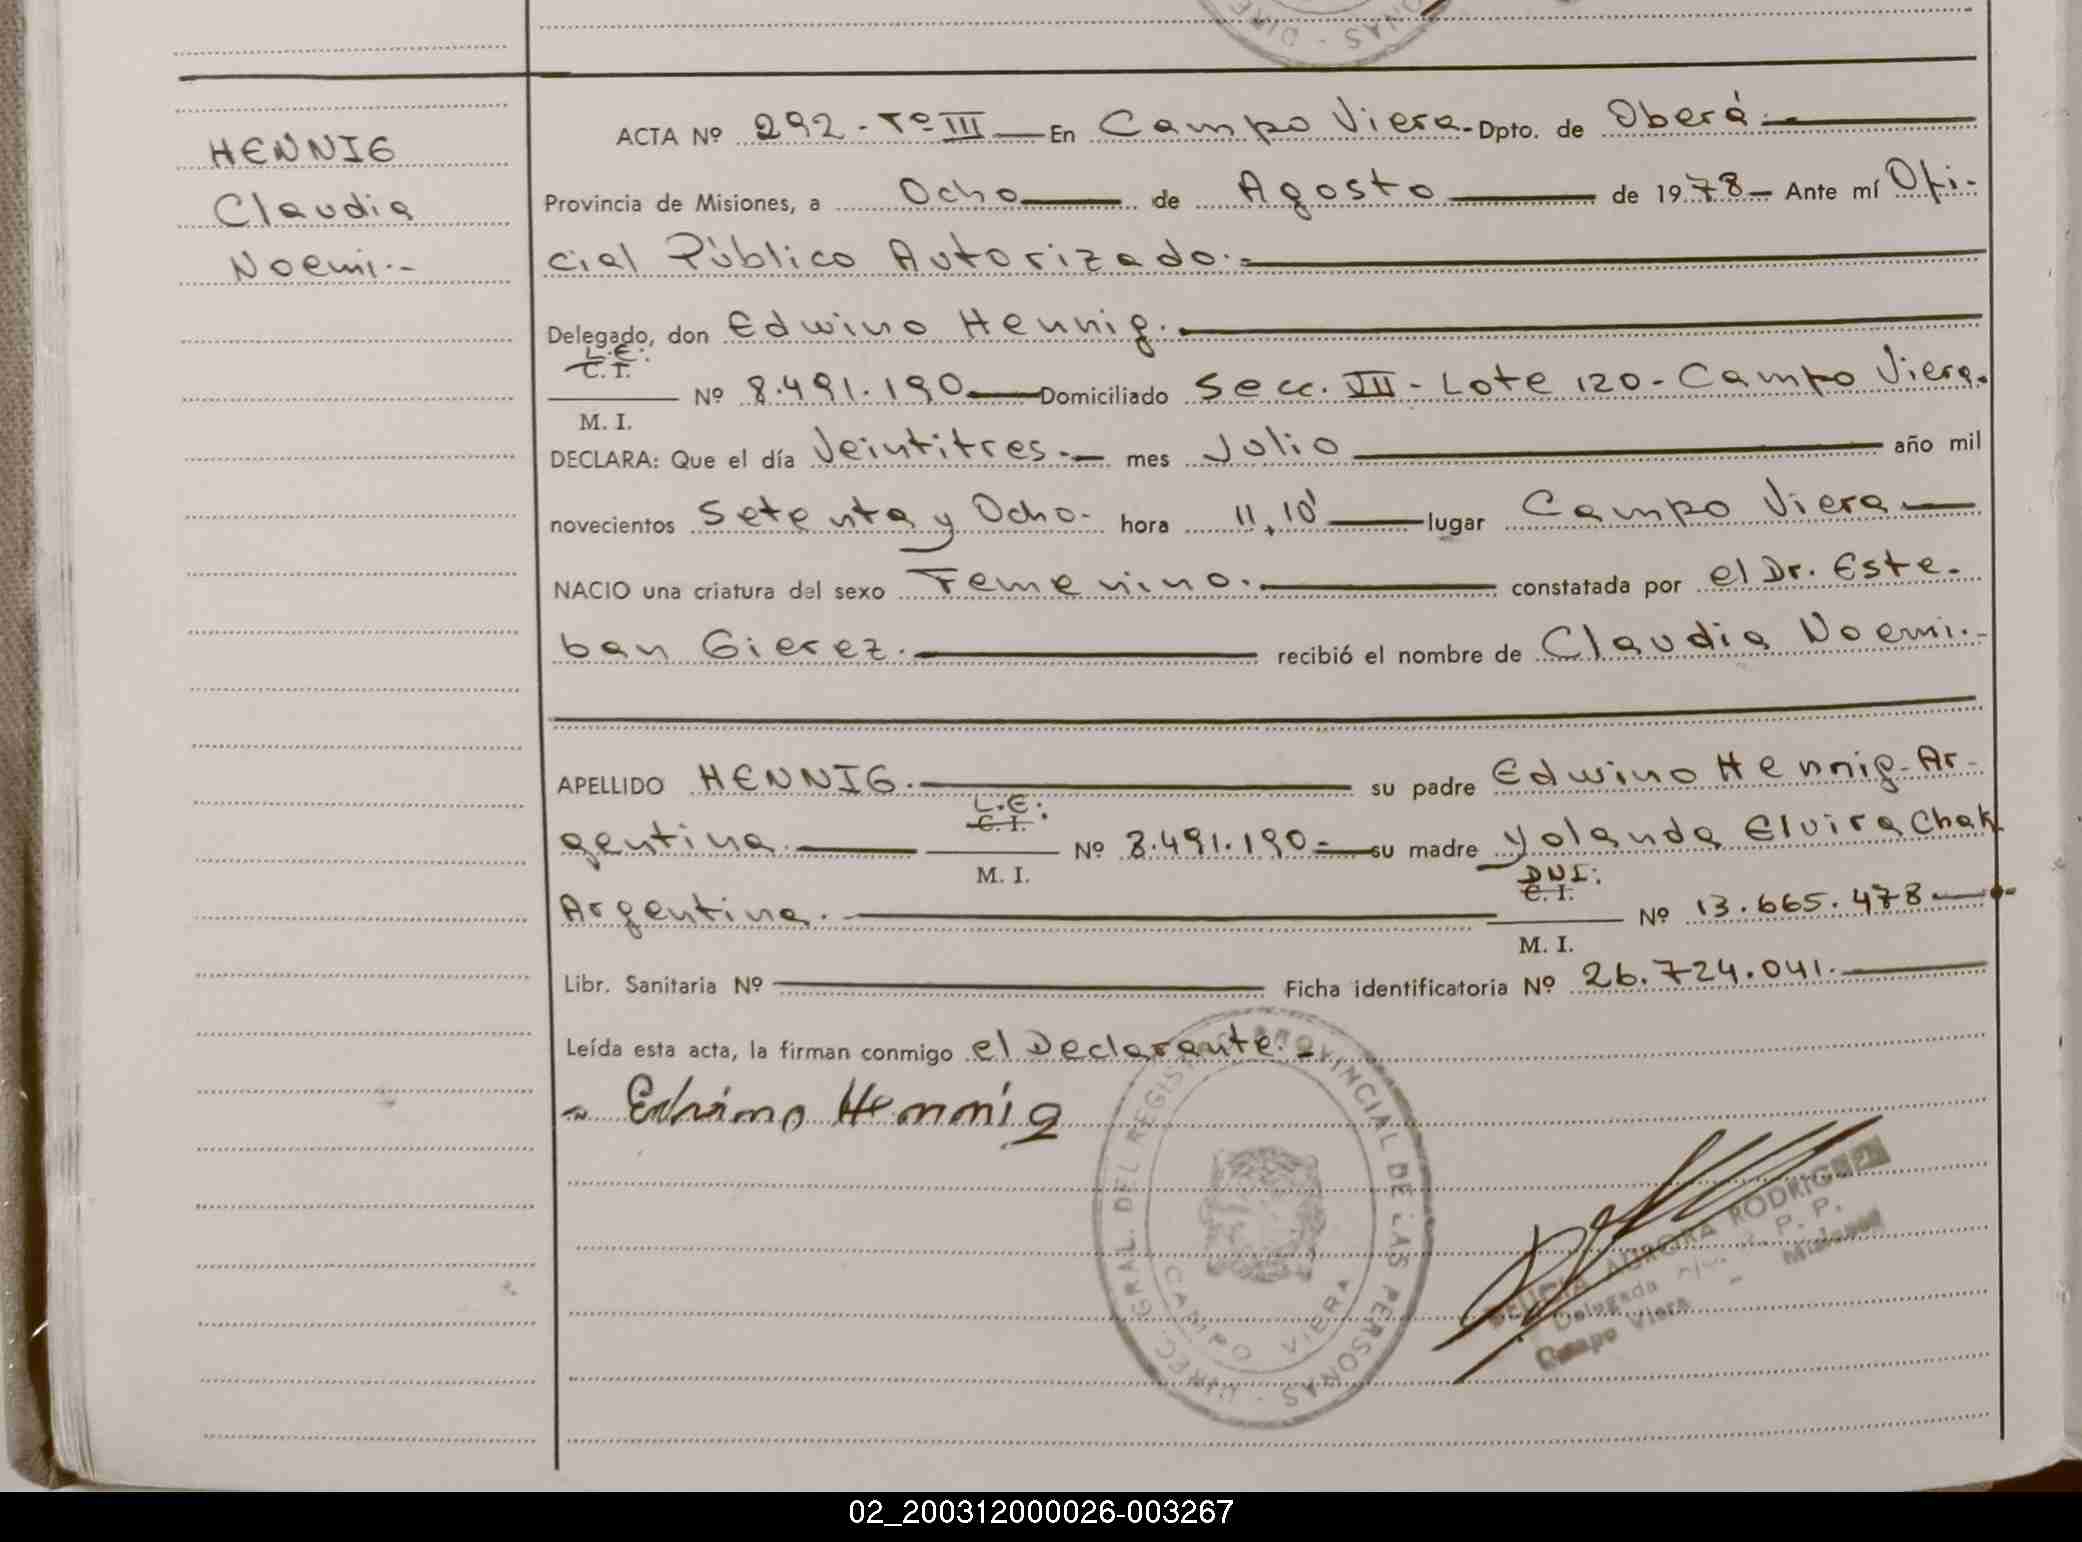 HENNIG
Claudia
Noemi.-
ACTA Nº 292 - Tº III — En Campo Viera - Dpto. de Oberá
Provincia de Misiones, a Ocho de Agosto de 1978 — Ante mí Ofi-
cial Público Autorizado.-
Delegado, don Edwino Hennig.
L.E:
C. I.
M. I.
Nº 8.491.190 — Domiciliado Secc. VII - Lote 120 - Campo Viera.
DECLARA: Que el día Veintitres.- mes Julio año mil
novecientos Setenta y Ocho. hora 11,10' lugar Campo Viera
NACIO una criatura del sexo Femenino. constatada por el Dr. Este-
ban Gierez. recibió el nombre de Claudia Noemi.-
APELLIDO HENNIG. su padre Edwino Hennig - Ar-
L.E:
C. I.
gentina. Nº 8.491.190 - su madre Yolanda Elvira Chak
M. I.
DNI:
C. I.
Argentina. Nº 13.665.478
M. I.
Libr. Sanitaria Nº Ficha identificatoria Nº 26.724.041.
Leída esta acta, la firman conmigo el Declarante.-
Edwino Hennig
DIREC. GRAL. DEL REGISTRO PROVINCIAL DE LAS PERSONAS
CAMPO VIERA
AURORA RODRIGUEZ
Delegada
Campo Viera - Misiones
02_200312000026-003267